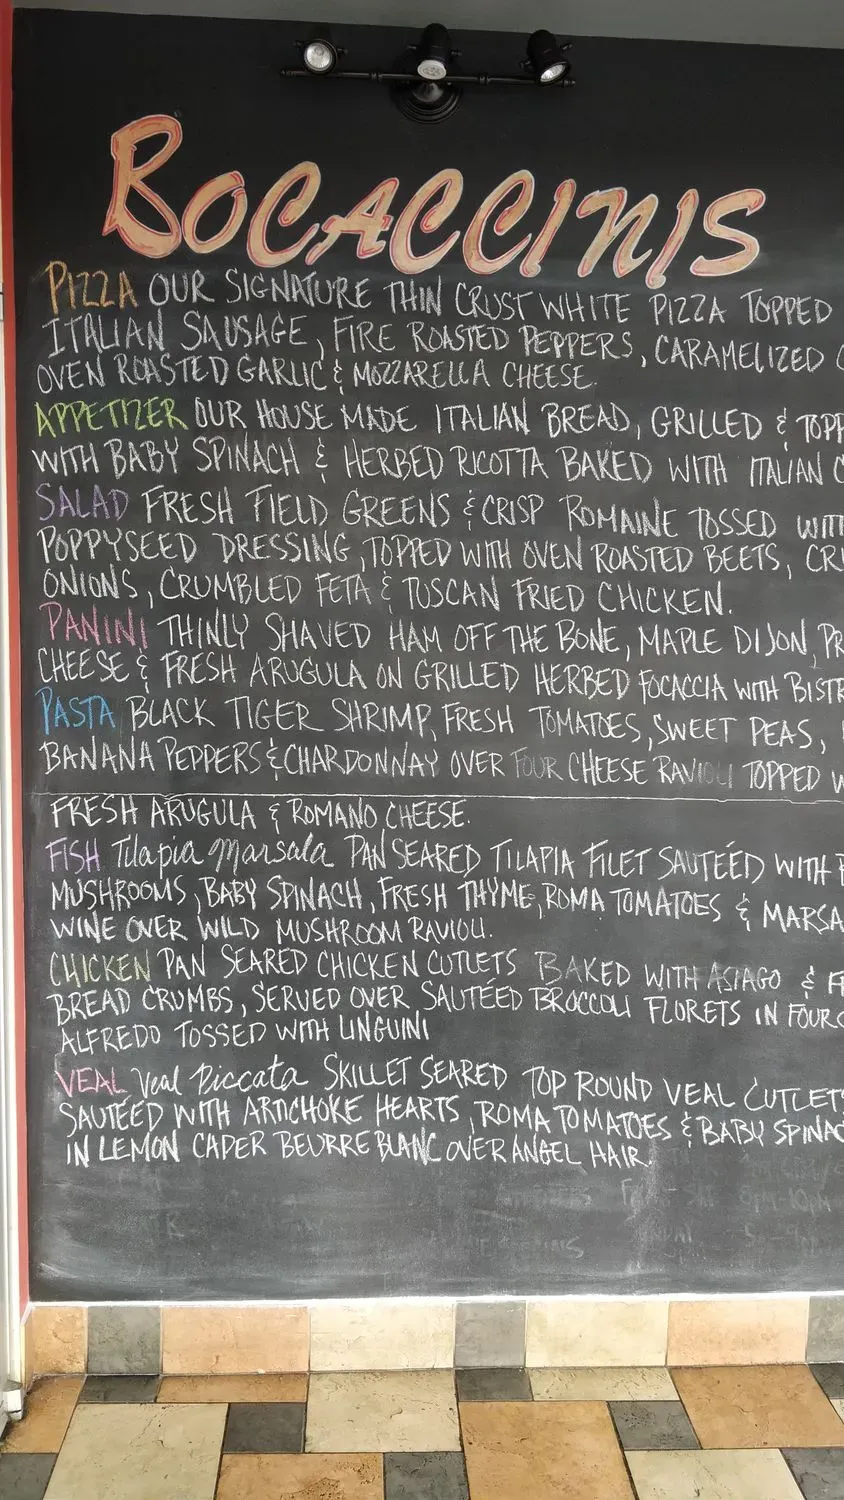 BOCACCINIS
PIZZA OUR SIGNATURE THIN CRUST WHITE PIZZA TOPPED
ITALIAN SAUSAGE, FIRE ROASTED PEPPERS, CARAMELIZED
OVEN ROASTED GARLIC & MOZZARELLA CHEESE.
APPETIZER OUR HOUSE MADE ITALIAN BREAD, GRILLED & TOPP
WITH BABY SPINACH & HERBED RICOTTA BAKED WITH ITALIAN C
SALAD FRESH FIELD GREENS & CRISP ROMAINE TOSSED WIT
POPPYSEED DRESSING, TOPPED WITH OVEN ROASTED BEETS, CRI
ONIONS, CRUMBLED FETA & TUSCAN FRIED CHICKEN.
PANINI THINLY SHAVED HAM OFF THE BONE, MAPLE DIJON, PR
CHEESE & FRESH ARUGULA ON GRILLED HERBED FOCACCIA WITH BISTR
PASTA BLACK TIGER SHRIMP, FRESH TOMATOES, SWEET PEAS,
BANANA PEPPERS & CHARDONNAY OVER FOUR CHEESE RAVIOLI TOPPED W
FRESH ARUGULA & ROMANO CHEESE.
FISH Tilapia Marsala PAN SEARED TILAPIA FILET SAUTÉED WITH
MUSHROOMS, BABY SPINACH, FRESH THYME, ROMA TOMATOES & MARSA
WINE OVER WILD MUSHROOM RAVIOLI.
CHICKEN PAN SEARED CHICKEN CUTLETS BAKED WITH ASIAGO & F
BREAD CRUMBS, SERVED OVER SAUTÉED BROCCOLI FLORETS IN FOUR C
ALFREDO TOSSED WITH LINGUINI
VEAL Veal Piccata SKILLET SEARED TOP ROUND VEAL CUTLETS
SAUTÉED WITH ARTICHOKE HEARTS, ROMA TOMATOES & BABY SPINAC
IN LEMON CAPER BEURRE BLANC OVER ANGEL HAIR.